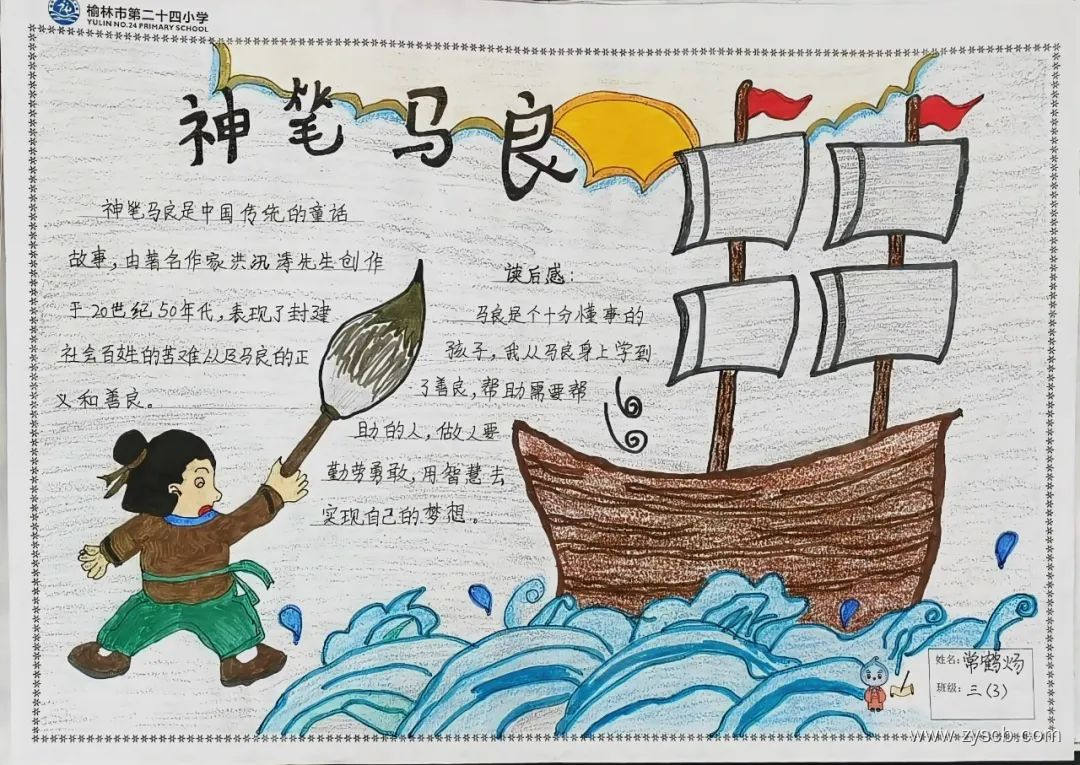 榆林市第二十四小学
YULIN NO.24 PRIMARY SCHOOL
神笔马良
神笔马良是中国传统的童话
故事，由著名作家洪汛涛先生创作
于20世纪50年代，表现了封建
社会百姓的苦难从及马良的正
义和善良。
读后感：
马良是个十分懂事的
孩子，我从马良身上学到
了善良，帮助需要帮
助的人，做人要
勤劳勇敢，用智慧去
实现自己的梦想。
姓名：常鹤炀
班级：三（3）
www.zyscb.com